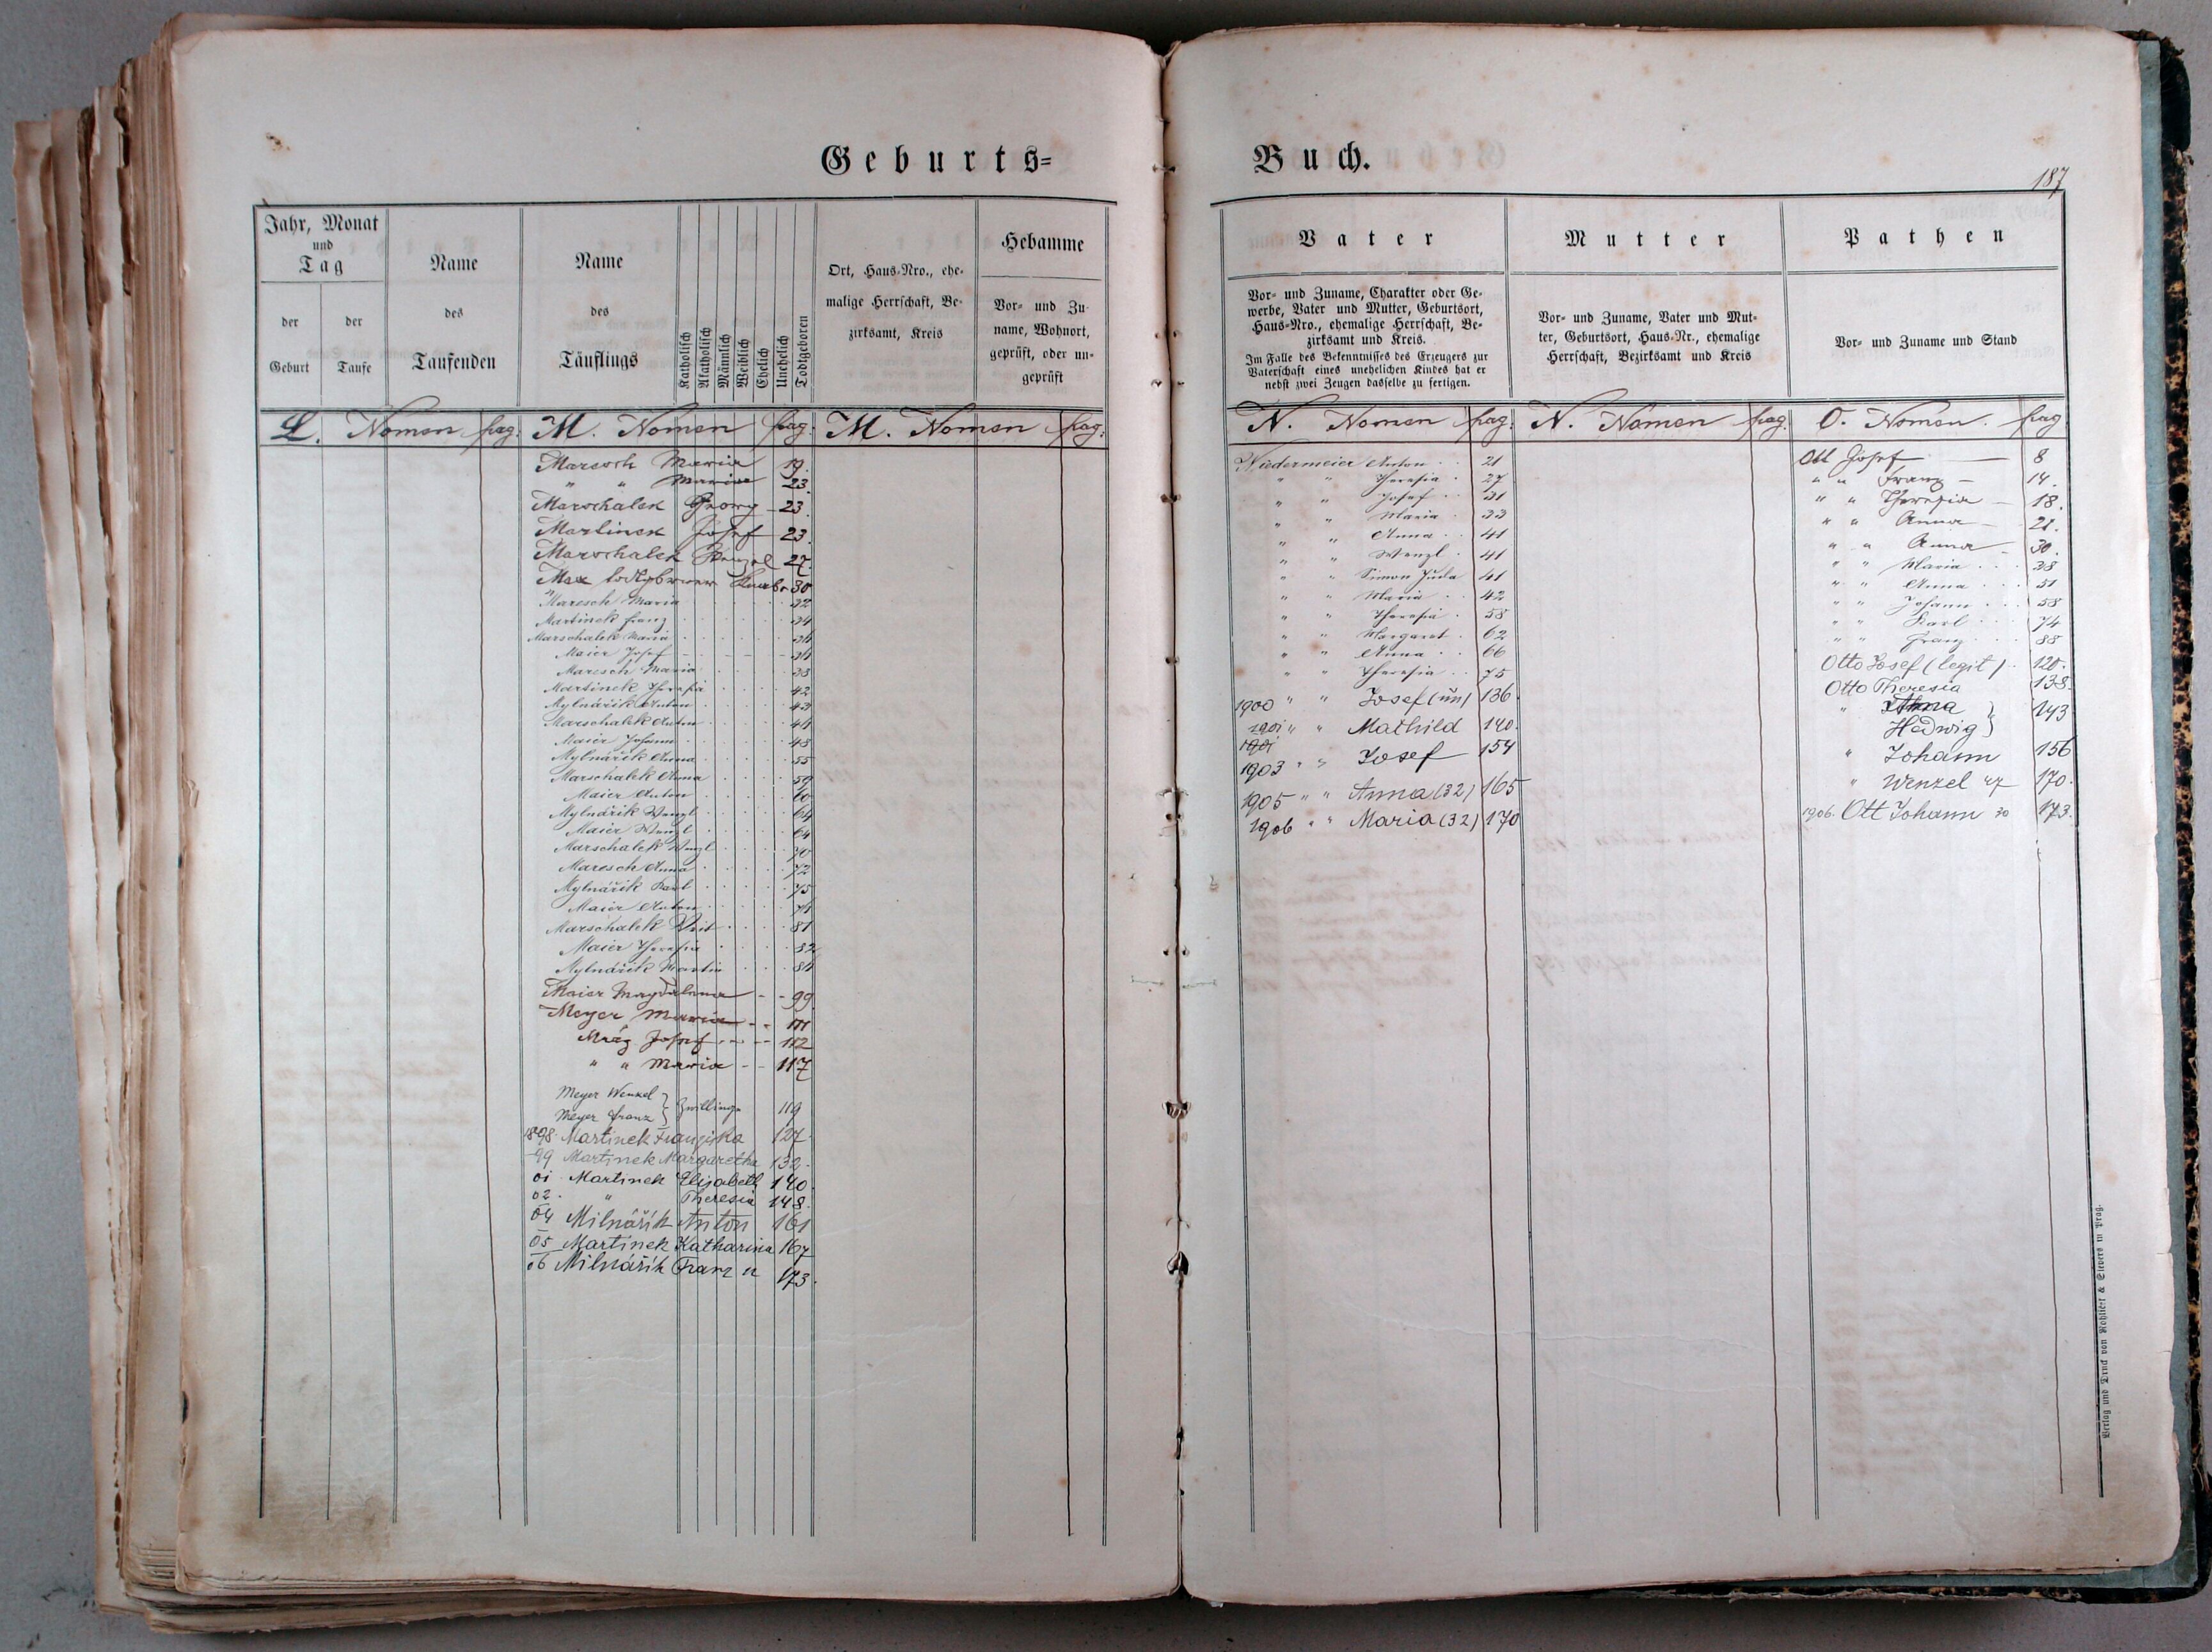 Geburts=
Jahr, Monat
und
Tag
der
Geburt
der
Taufe
Name
des
Taufenden
Name
des
Täuflings
Katholisch
Akatholisch
Männlich
Weiblich
Ehelich
Unehelich
Todtgeboren
Ort, Haus-Nro., ehe-
malige Herrschaft, Be-
zirksamt, Kreis
Hebamme
Vor- und Zu-
name, Wohnort,
geprüft, oder un-
geprüft
L. Nomen pag.
M. Nomen pag.
M. Nomen pag.
Maresch Maria 19.
" " Maria 23.
Marschalek Georg - 23.
Martinek Josef 23.
Marschalek Wenzel 27.
Max 30
Maresch Maria 32
Martinek Franz 34
Marschalek Maria
Maier Josef
Maresch Maria 38
Martinek Theresia 42
Mylnářik Anton 43
Marschalek Anton 44
Maier Johann 48
Mylnářik Anna 55
Marschalek Anna 59
Maier Anton 60
Mylnářik Wenzl 64
Maier Wenzl 64
Marschalek Wenzl 70
Maresch Anna 72
Mylnářik Karl 75
Maier Anton
Marschalek Veit 81
Maier Theresia 82
Mylnářik Martin 84
Maier Magdalena - - 99.
Meyer Maria - - 111
Mráz Josef - - 112
" " Maria - - 117
Meyer Wenzel } Zwillinge 119
Meyer Franz }
1898. Martinek Franziska 127.
99 Martinek Margaretha 132.
01 Martinek Elisabeth 140.
02. " Theresia 148.
04 Milnářík Anton 161
05 Martinek Katharina 167
06 Milnářík Franz 173.
Buch.
187
Vater
Vor- und Zuname, Charakter oder Ge-
werbe, Vater und Mutter, Geburtsort,
Haus-Nro., ehemalige Herrschaft, Be-
zirksamt und Kreis.
Im Falle des Bekenntnisses des Erzeugers zur
Vaterschaft eines unehelichen Kindes hat er
nebst zwei Zeugen dasselbe zu fertigen.
Mutter
Vor- und Zuname, Vater und Mut-
ter, Geburtsort, Haus-Nr., ehemalige
Herrschaft, Bezirksamt und Kreis
Pathen
Vor- und Zuname und Stand
N. Nomen pag.
N. Nomen pag.
O. Nomen. pag
Niedermeier Anton 21
" " Theresia 27
" " Josef 31
" " Maria 33
" " Anna 41
" " Wenzl 41
" " Simon Juda 41
" " Maria 42
" " Theresia 58
" " Margaret 62
" " Anna 66
" " Theresia 75
1900 " " Josef (un) 136.
1901 " " Mathild 140.
1901
1903 " " Josef 154
1905 " " Anna (32) 165
1906 " " Maria (32) 170
Ott Josef 8
" " Franz 14.
" " Theresia 18.
" " Anna 21.
" " Anna 30.
" " Maria 38
" " Anna 51
" " Johann 58
" " Karl 74
" " Franz 88
Otto Josef (legit) 120.
Otto Theresia 138.
" Anna } 143
Hedwig }
" Johann 156
" Wenzel 170.
1906. Ott Johann 30 173.
Verlag und Druck von Rohliček & Sievers in Prag.